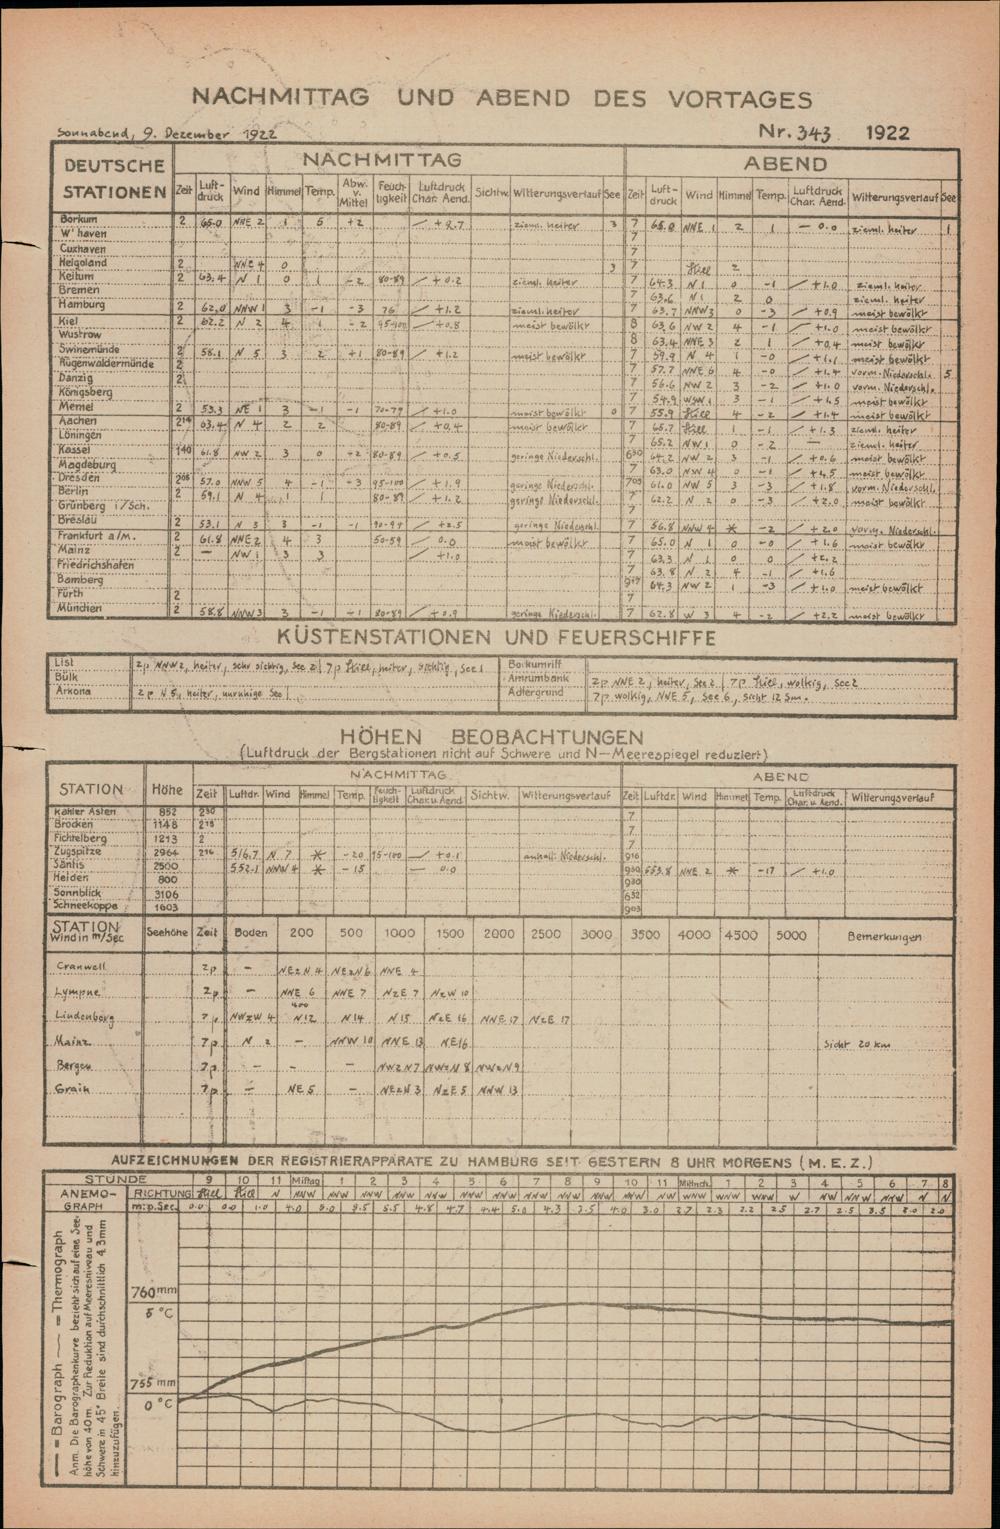 NACHMITTAG UND ABEND DES VORTAGES
Sonnabend, 9. Dezember 1922
Nr. 343 1922
DEUTSCHE STATIONEN
NACHMITTAG
ABEND
Zeit Luft-druck Wind Himmel Temp. Abw. v. Mittel Feuch-tigkeit Luftdruck Char. Aend. Sichtw. Witterungsverlauf See Zeit Luft-druck Wind Himmel Temp. Luftdruck Char. Aend. Witterungsverlauf See
Borkum 2 65.0 NNE 2 1 5 +2 +2.7 zieml. heiter 3 7 65.0 NNE 1 2 1 — 0.0 zieml. heiter 1
W'haven 7
Cuxhaven 7
Helgoland 2 NNE 4 0 3 7 Still 2
Keitum 2 63.4 N 1 0 1 -2 80-89 +0.2 zieml. heiter 7 64.3 N 1 0 -1 +1.0 zieml. heiter
Bremen 7 63.6 N 1 2 0 zieml. heiter
Hamburg 2 62.0 NNW 1 3 -1 -3 76 +1.2 meist bewölkt 7 63.7 NNW 3 0 -3 +0.9 meist bewölkt
Kiel 2 62.2 N 2 4 1 -2 95-100 +0.8 meist bewölkt 8 63.6 NW 2 4 -1 +1.0 meist bewölkt
Wustrow 8 63.4 NNE 3 2 1 +0.4 meist bewölkt
Swinemünde 2 58.1 N 5 3 2 +1 80-89 +1.2 meist bewölkt 7 59.9 N 4 1 -0 +1.1 meist bewölkt
Rügenwaldermünde 2 7 57.7 NNE 6 4 -0 +1.4 vorm. Niederschl. 5
Danzig 2 7 56.6 NW 2 3 -2 +1.0 vorm. Niederschl.
Königsberg 7 54.9 WSW 1 3 -1 +1.5 meist bewölkt
Memel 2 53.3 NE 1 3 -1 -1 70-79 +1.0 meist bewölkt 0 7 55.9 Still 4 -2 +1.4 meist bewölkt
Aachen 2 14 63.4 N 4 2 2 80-89 +0.4 meist bewölkt 7 65.7 Still 1 -1 +1.3 zieml. heiter
Löningen 7 65.2 NW 1 0 -2 — zieml. heiter
Kassel 1 40 61.8 NW 2 3 0 +2 80-89 +0.5 geringe Niederschl. 6 50 64.2 NW 2 3 -1 +0.6 meist bewölkt
Magdeburg 7 63.0 NW 4 0 -1 +1.5 meist bewölkt
Dresden 2 05 57.0 NNW 5 4 -1 -3 95-100 +1.9 geringe Niederschl. 7 05 61.0 NW 5 3 -3 +1.8 vorm. Niederschl.
Berlin 2 59.1 N 4 1 1 80-89 +1.2 geringe Niederschl. 7 62.2 N 2 0 -3 +2.0 meist bewölkt
Grünberg i/Sch. 7
Breslau 2 53.1 N 3 3 -1 -1 +2.5 geringe Niederschl. 7 56.8 NNW 4 * -2 +2.0 vorm. Niederschl.
Frankfurt a/M. 2 61.8 NNE 2 4 3 50-59 0.0 meist bewölkt 7 65.0 N 1 0 -0 +1.6 meist bewölkt
Mainz 2 — NW 1 3 3 +1.0 7 63.3 N 1 0 0 +2.2
Friedrichshafen 7 63.8 N 2 4 -1 +1.6
Bamberg 64.3 NW 2 1 -3 +1.0 meist bewölkt
Fürth 2 7
München 2 58.8 NNW 3 3 -1 -1 80-89 +0.9 geringe Niederschl. 7 62.8 W 3 4 -2 +2.2 meist bewölkt
KÜSTENSTATIONEN UND FEUERSCHIFFE
List 2p NNW 2, heiter, sehr sichtig, See 2 | 7p Still, heiter, sichtig, See 1
Bülk
Arkona 2p N 5, heiter, unruhige See
Borkumriff
Amrumbank 2p NNE 2, heiter, See 2 | 7p Still, wolkig, See 2
Adlergrund 7p wolkig, NNE 5, See 6, Sicht 12 Sm.
HÖHEN BEOBACHTUNGEN
(Luftdruck der Bergstationen nicht auf Schwere und N—Meerespiegel reduziert)
STATION Höhe NACHMITTAG ABEND
Zeit Luftdr. Wind Himmel Temp. Feuch-tigkeit Luftdruck Char. u. Aend. Sichtw. Witterungsverlauf Zeit Luftdr. Wind Himmel Temp. Luftdruck Char. u. Aend. Witterungsverlauf
Kahler Asten 852 2 30 7
Brocken 1148 2 18 7
Fichtelberg 1213 2 7
Zugspitze 2964 2 16 516.7 N 7 * -20 95-100 +0.1 anhalt. Niederschl. 9 16
Säntis 2500 552.1 NNW 4 * -15 — 0.0 9 30 553.8 NNE 2 * -17 +1.0
Heiden 800 9 30
Sonnblick 3106 6 52
Schneekoppe 1603 9 03
STATION Wind in m/Sec Seehöhe Zeit Boden 200 500 1000 1500 2000 2500 3000 3500 4000 4500 5000 Bemerkungen
Cranwell 2p — NEzN 4 NEzN 6 NNE 4
Lympne 2p — NNE 6 NNE 7 NzE 7 NzW 10
400
Lindenberg 7p NWzW 4 N 12 N 14 N 15 NzE 16 NNE 17 NzE 17
Mainz 7p N 2 — NNW 10 NNE 13 NE 16 Sicht 20 km
Bergen 7p — — — NWzN 7 NWzN 8 NWzN 9
Grain 7p — NE 5 — NEzN 3 NzE 5 NNW 13
AUFZEICHNUNGEN DER REGISTRIERAPPARATE ZU HAMBURG SEIT GESTERN 8 UHR MORGENS (M.E.Z.)
STUNDE 9 10 11 Mittag 1 2 3 4 5 6 7 8 9 10 11 Mittnch. 1 2 3 4 5 6 7 8
ANEMO-GRAPH
RICHTUNG Still Still N NNW NW NNW NNW NNW NNW NNW NNW NNW NNW NNW NW NW WNW NW WNW W NW NNW NNW N N
m:p.Sec. 0.0 0.0 1.0 4.0 5.0 5.5 5.5 4.8 4.7 4.4 5.0 4.3 3.5 4.0 3.0 2.7 2.3 2.2 2.5 2.7 2.5 3.5 2.0 2.0
760 mm
5 °C
755 mm
0 °C
— = Barograph — = Thermograph
Anm. Die Barographenkurve bezieht sich auf eine See-
höhe von 40 m. Zur Reduktion auf Meeresniveau und
Schwere in 45° Breite sind durchschnittlich 4.3 mm
hinzuzufügen.